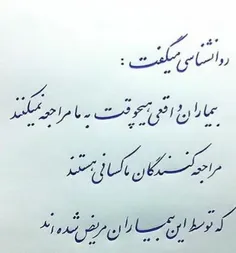 روانشناسی میگفت :
بیماران واقعی هیچوقت به ما مراجعه نمیکنند
مراجعه کنندگان ما کسانی هستند
که توسط این بیماران مریض شده اند